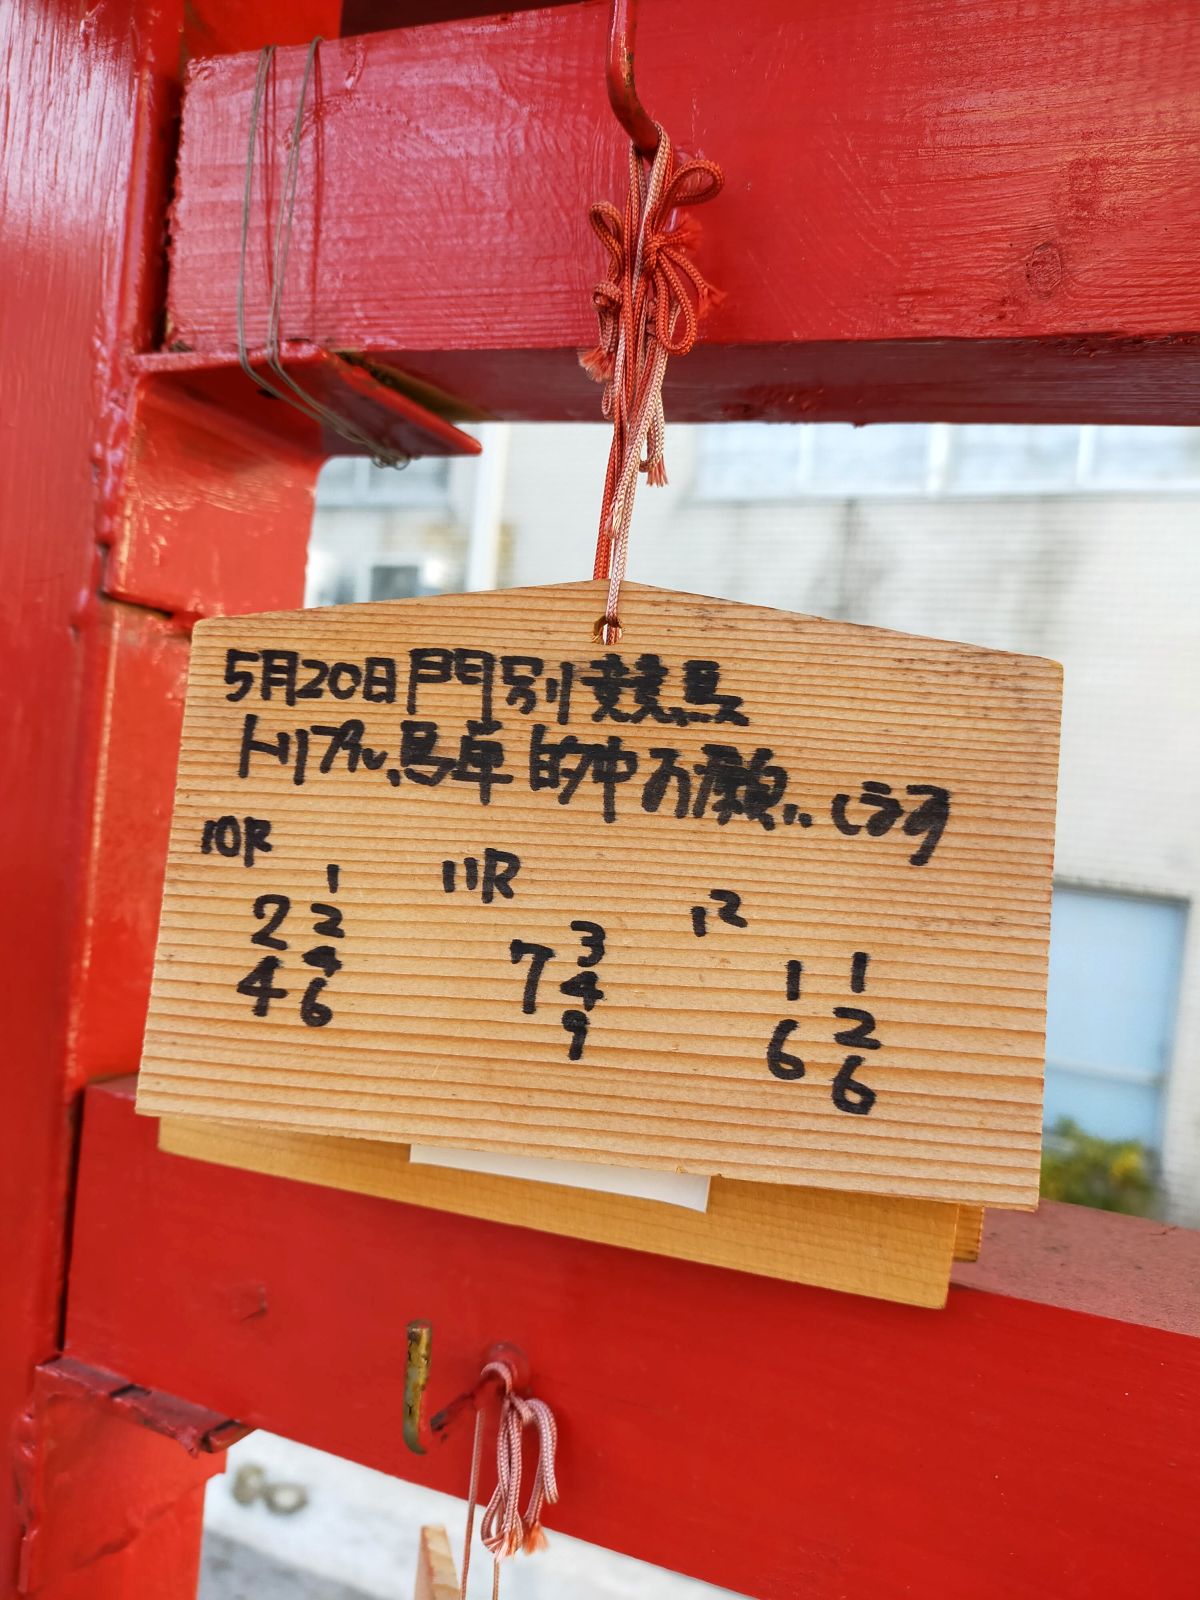 5月20日門別競馬
トリプル馬単的中お願いします
10R
2 1
4 2
4
6
11R
7 3
4
9
12
1 1
6 2
6